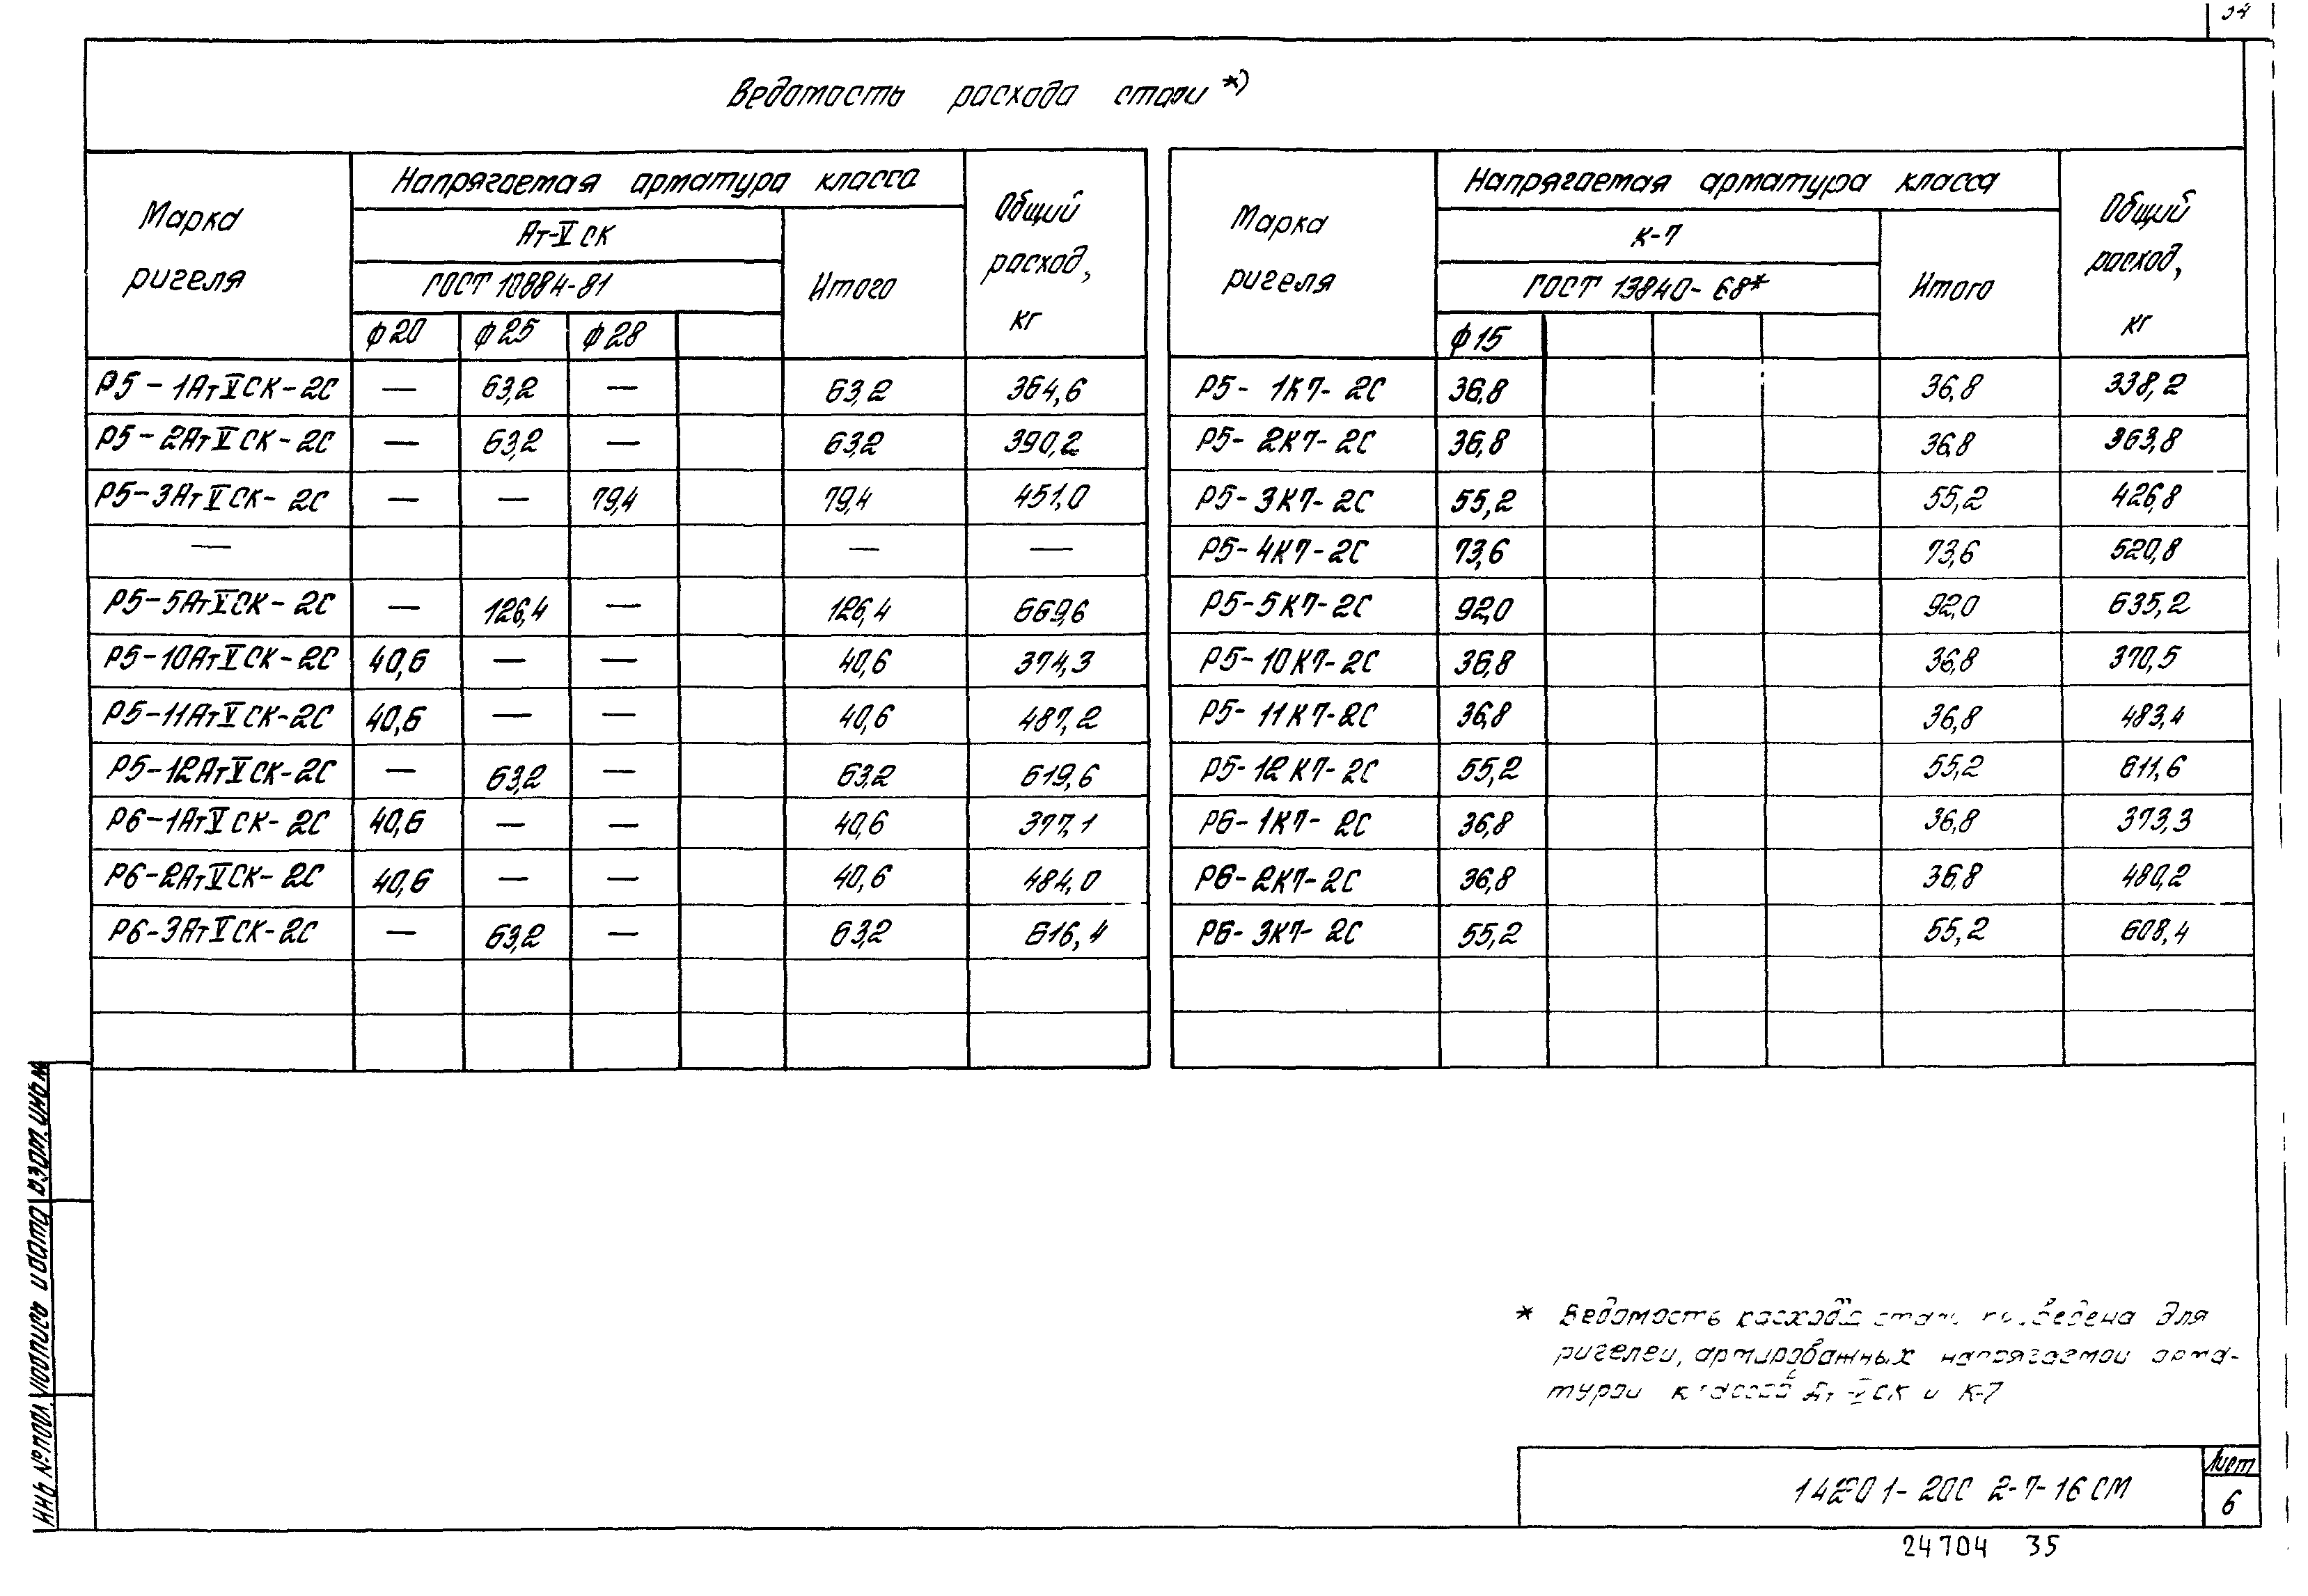 34
Ведомость расхода стали *)
Марка ригеля | Напрягаемая арматура класса | Общий расход, кг
Ат-V СК | Итого
ГОСТ 10884-81
ф20 | ф25 | ф28
Р5-1АтVСК-2С | — | 63,2 | — | 63,2 | 364,6
Р5-2АтVСК-2С | — | 63,2 | — | 63,2 | 390,2
Р5-3АтVСК-2С | — | — | 79,4 | 79,4 | 451,0
— | — | —
Р5-5АтVСК-2С | — | 126,4 | — | 126,4 | 669,6
Р5-10АтVСК-2С | 40,6 | — | — | 40,6 | 374,3
Р5-11АтVСК-2С | 40,6 | — | — | 40,6 | 487,2
Р5-12АтVСК-2С | — | 63,2 | — | 63,2 | 619,6
Р6-1АтVСК-2С | 40,6 | — | — | 40,6 | 377,1
Р6-2АтVСК-2С | 40,6 | — | — | 40,6 | 484,0
Р6-3АтVСК-2С | — | 63,2 | — | 63,2 | 616,4
Марка ригеля | Напрягаемая арматура класса | Общий расход, кг
К-7 | Итого
ГОСТ 13840-68*
ф15
Р5-1К7-2С | 36,8 | 36,8 | 338,2
Р5-2К7-2С | 36,8 | 36,8 | 363,8
Р5-3К7-2С | 55,2 | 55,2 | 426,8
Р5-4К7-2С | 73,6 | 73,6 | 520,8
Р5-5К7-2С | 92,0 | 92,0 | 635,2
Р5-10К7-2С | 36,8 | 36,8 | 370,5
Р5-11К7-2С | 36,8 | 36,8 | 483,4
Р5-12К7-2С | 55,2 | 55,2 | 611,6
Р6-1К7-2С | 36,8 | 36,8 | 373,3
Р6-2К7-2С | 36,8 | 36,8 | 480,2
Р6-3К7-2С | 55,2 | 55,2 | 608,4
* Ведомость расхода стали приведена для
ригелей, армированных напрягаемой арма-
турой классов Ат-V СК и К-7
Инв № подл. Подпись и дата Взам. инв. №
1.420.1-20С 2-7-16СМ
Лист
6
24704 35